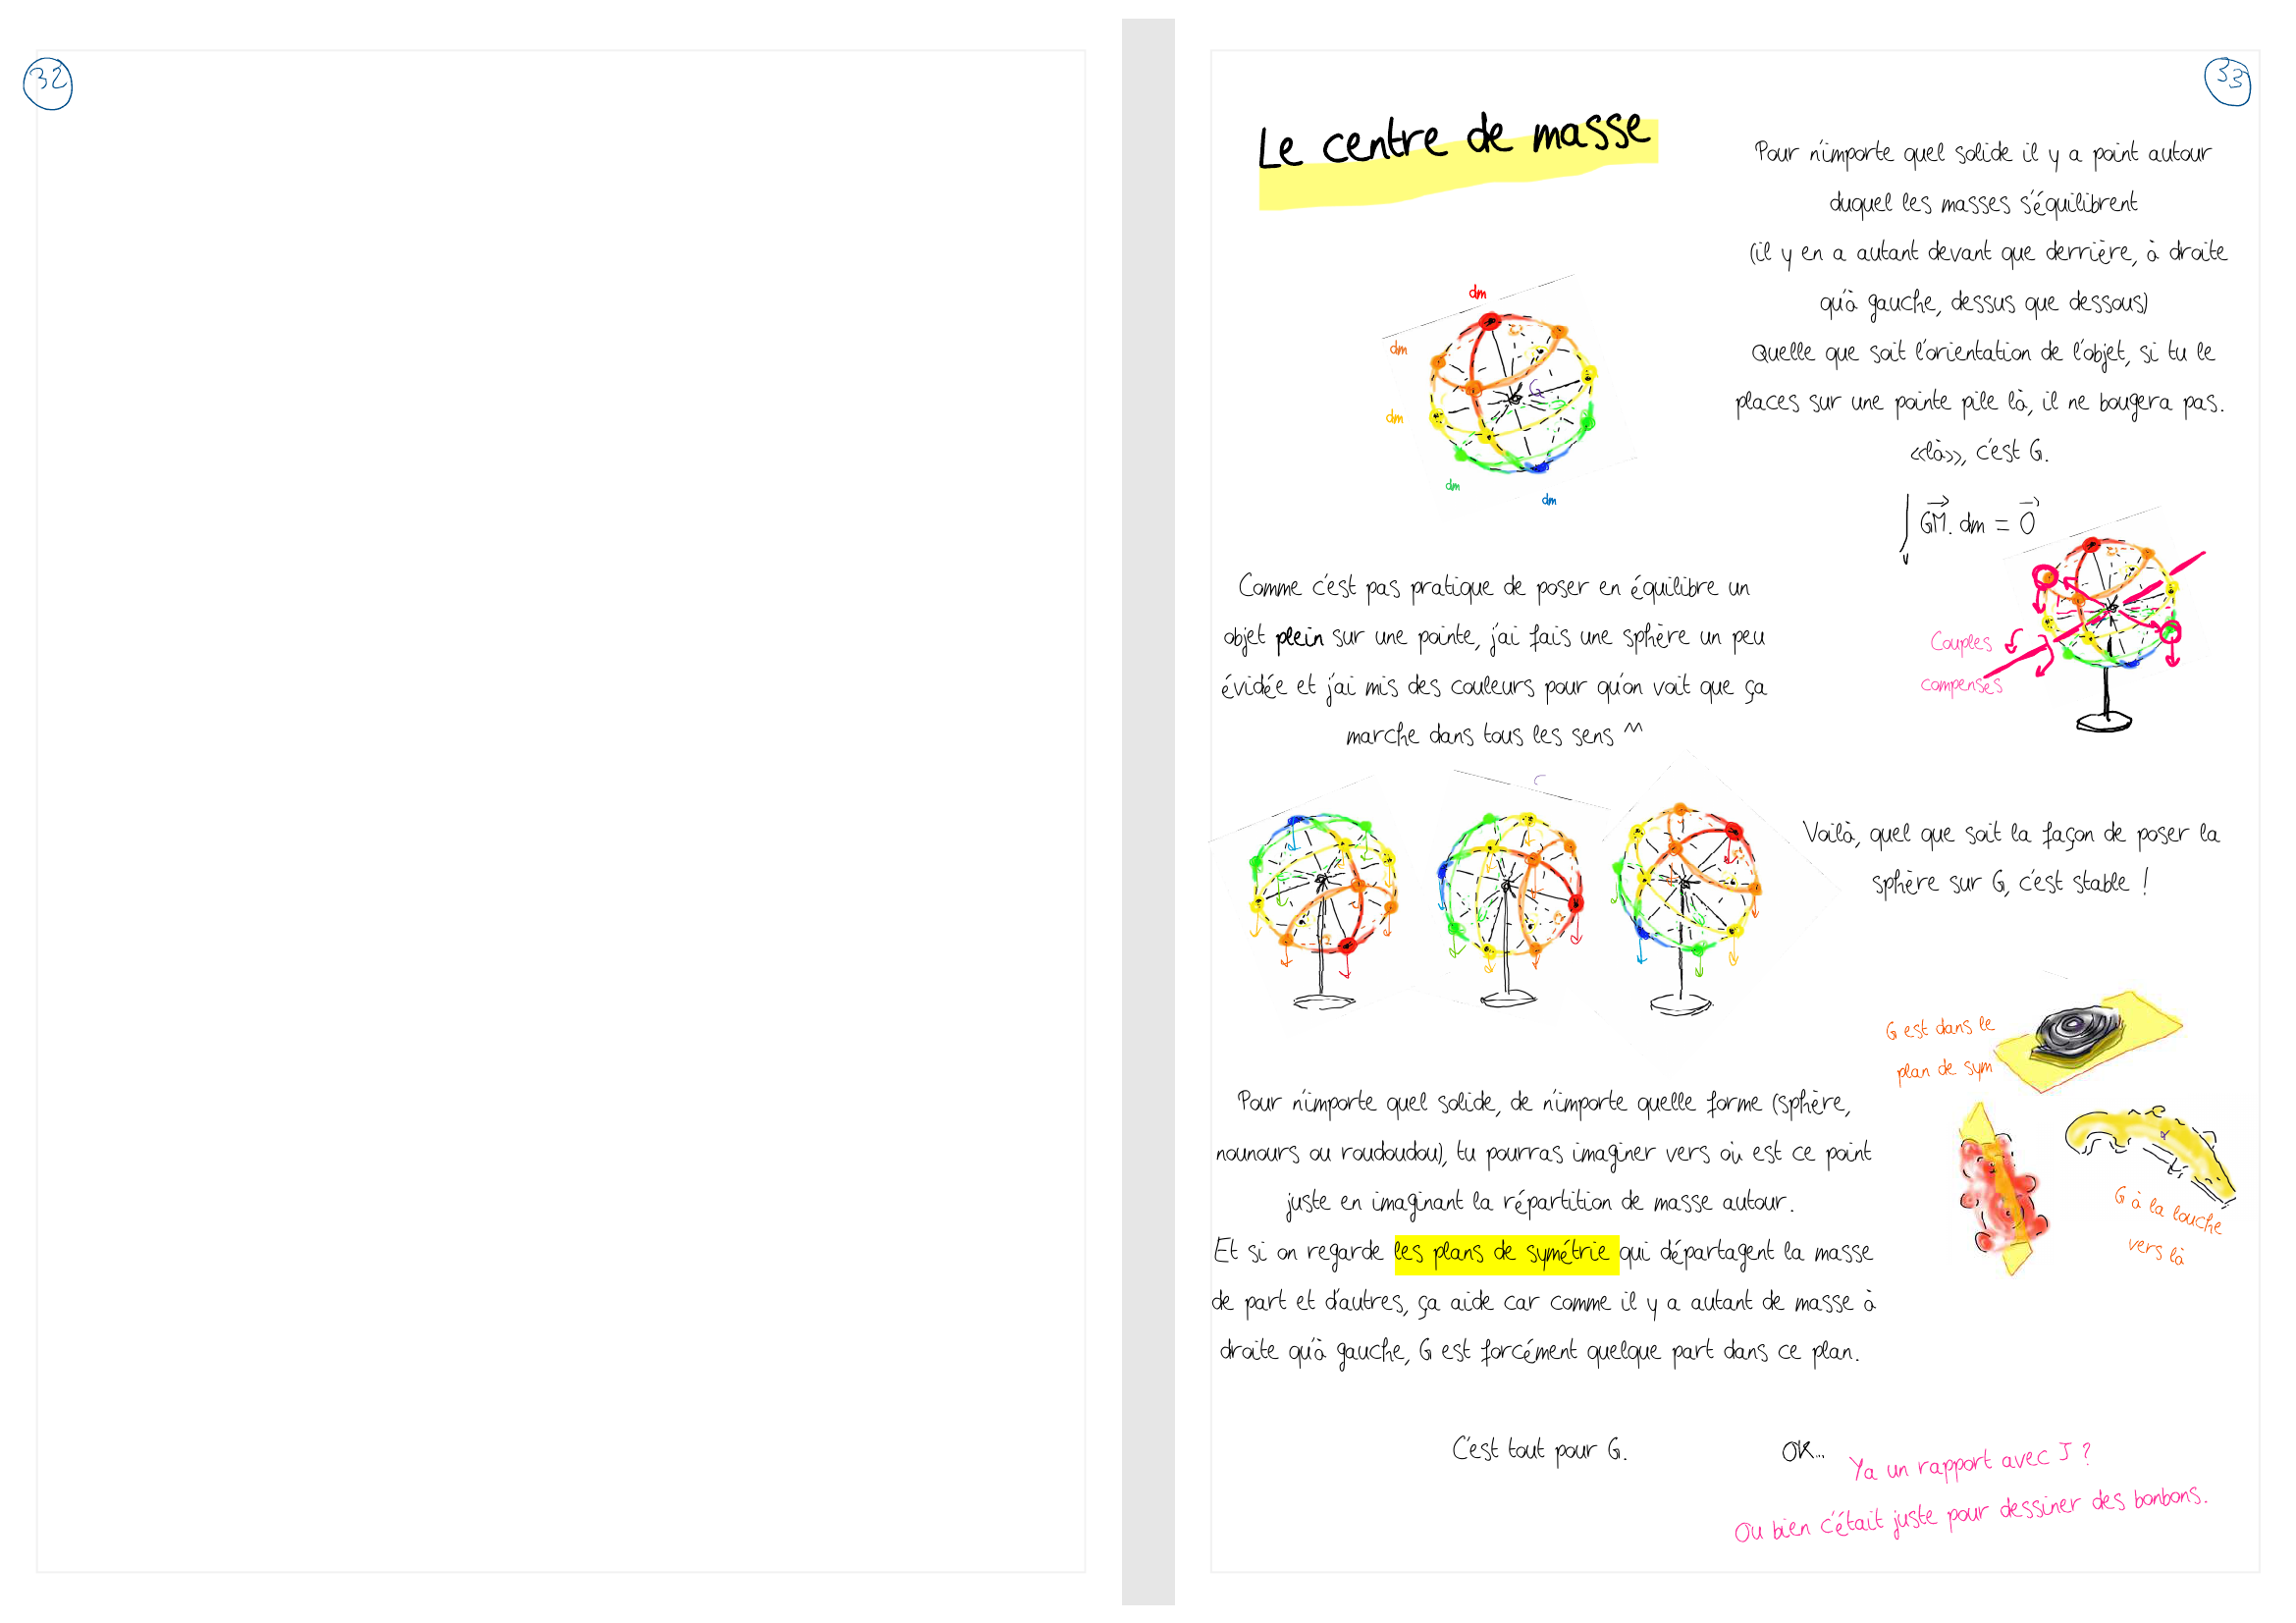 32
33
Le centre de masse
Pour n'importe quel solide il y a point autour
duquel les masses s'équilibrent
(il y en a autant devant que derrière, à droite
qu'à gauche, dessus que dessous)
Quelle que soit l'orientation de l'objet, si tu le
places sur une pointe pile là, il ne bougera pas.
«là», c'est G.
∫ GM⃗. dm = 0⃗
dm
dm
dm
G
dm
dm
Comme c'est pas pratique de poser en équilibre un
objet plein sur une pointe, j'ai fais une sphère un peu
évidée et j'ai mis des couleurs pour qu'on voit que ça
marche dans tous les sens ^^
Couples
compensés
Voilà, quel que soit la façon de poser la
sphère sur G, c'est stable !
G est dans le
plan de sym
G à la louche
vers là
Pour n'importe quel solide, de n'importe quelle forme (sphère,
nounours ou roudoudou), tu pourras imaginer vers où est ce point
juste en imaginant la répartition de masse autour.
Et si on regarde les plans de symétrie qui départagent la masse
de part et d'autres, ça aide car comme il y a autant de masse à
droite qu'à gauche, G est forcément quelque part dans ce plan.
C'est tout pour G.
OK...
Ya un rapport avec J ?
Ou bien c'était juste pour dessiner des bonbons.